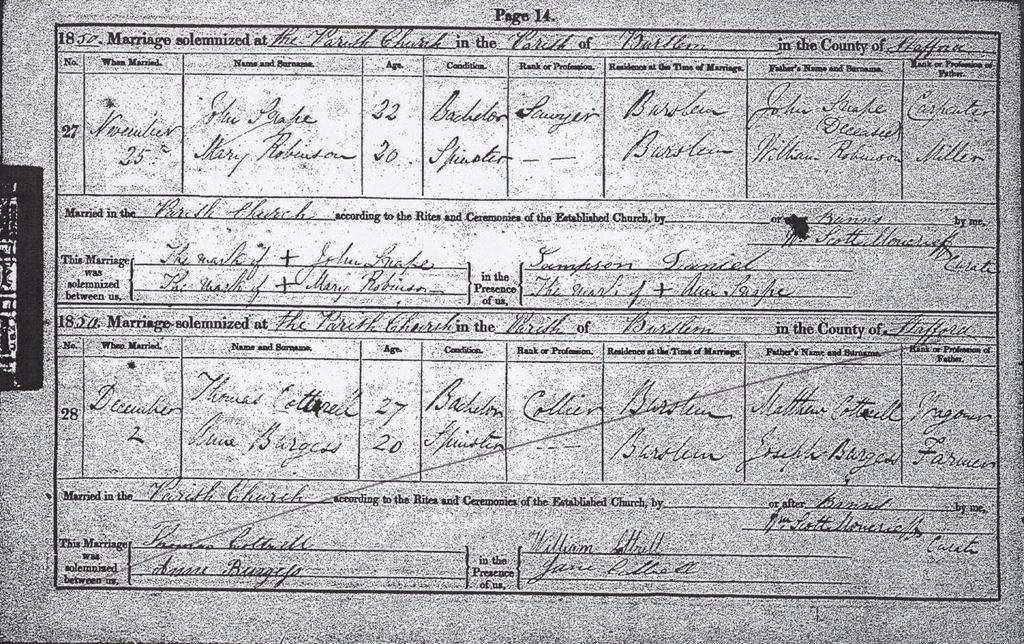 Page 14.
1850. Marriage solemnized at the Parish Church in the Parish of Burslem in the County of Stafford
No. When Married. Name and Surname. Age. Condition. Rank or Profession. Residence at the Time of Marriage. Father's Name and Surname. Rank or Profession of Father.
27 November 25 John Snape 22 Bachelor Sawyer Burslem John Snape Deceased Carpenter
Mary Robinson 20 Spinster — — Burslem William Robinson Miller
Married in the Parish Church according to the Rites and Ceremonies of the Established Church, by or Banns by me,
Wm Scott Moncrieff
Curate
This Marriage was solemnized between us, The mark of + John Snape in the Presence of us, Sampson Daniel
The mark of + Mary Robinson The mark of + Ann Snape
1850. Marriage solemnized at the Parish Church in the Parish of Burslem in the County of Stafford
No. When Married. Name and Surname. Age. Condition. Rank or Profession. Residence at the Time of Marriage. Father's Name and Surname. Rank or Profession of Father.
28 December 2 Thomas Cottrell 27 Bachelor Collier Burslem Matthew Cottrell
Burgess 20 Spinster — — Burslem Joseph Burgess Farmer
Married in the Parish Church according to the Rites and Ceremonies of the Established Church, by or after Banns by me,
Wm Scott Moncrieff
Curate
This Marriage was solemnized between us, Thomas Cottrell in the Presence of us, William Cottrell
Burgess Jane